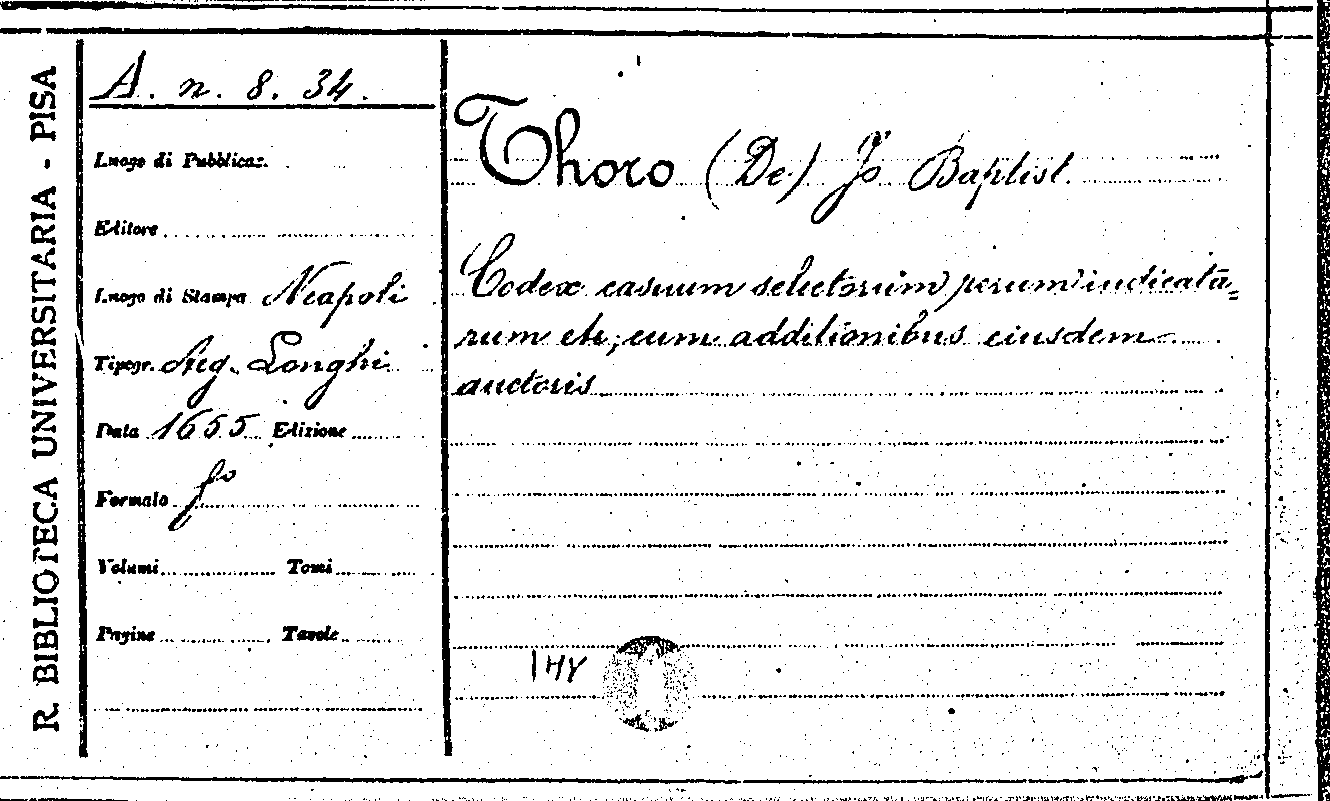 R. BIBLIOTECA UNIVERSITARIA - PISA
A. n. 8. 34.
Luogo di Pubblicaz.
Editore
Luogo di Stampa Neapoli
Tipogr. Aeg. Longhi
Data 1655 Edizione
Formato fo
Volumi Tomi
Pagine Tavole
Thoro (De) Jo Baptist.
Codex casuum selectorum rerum iudicata=
rum etc, cum additionibus eiusdem
auctoris